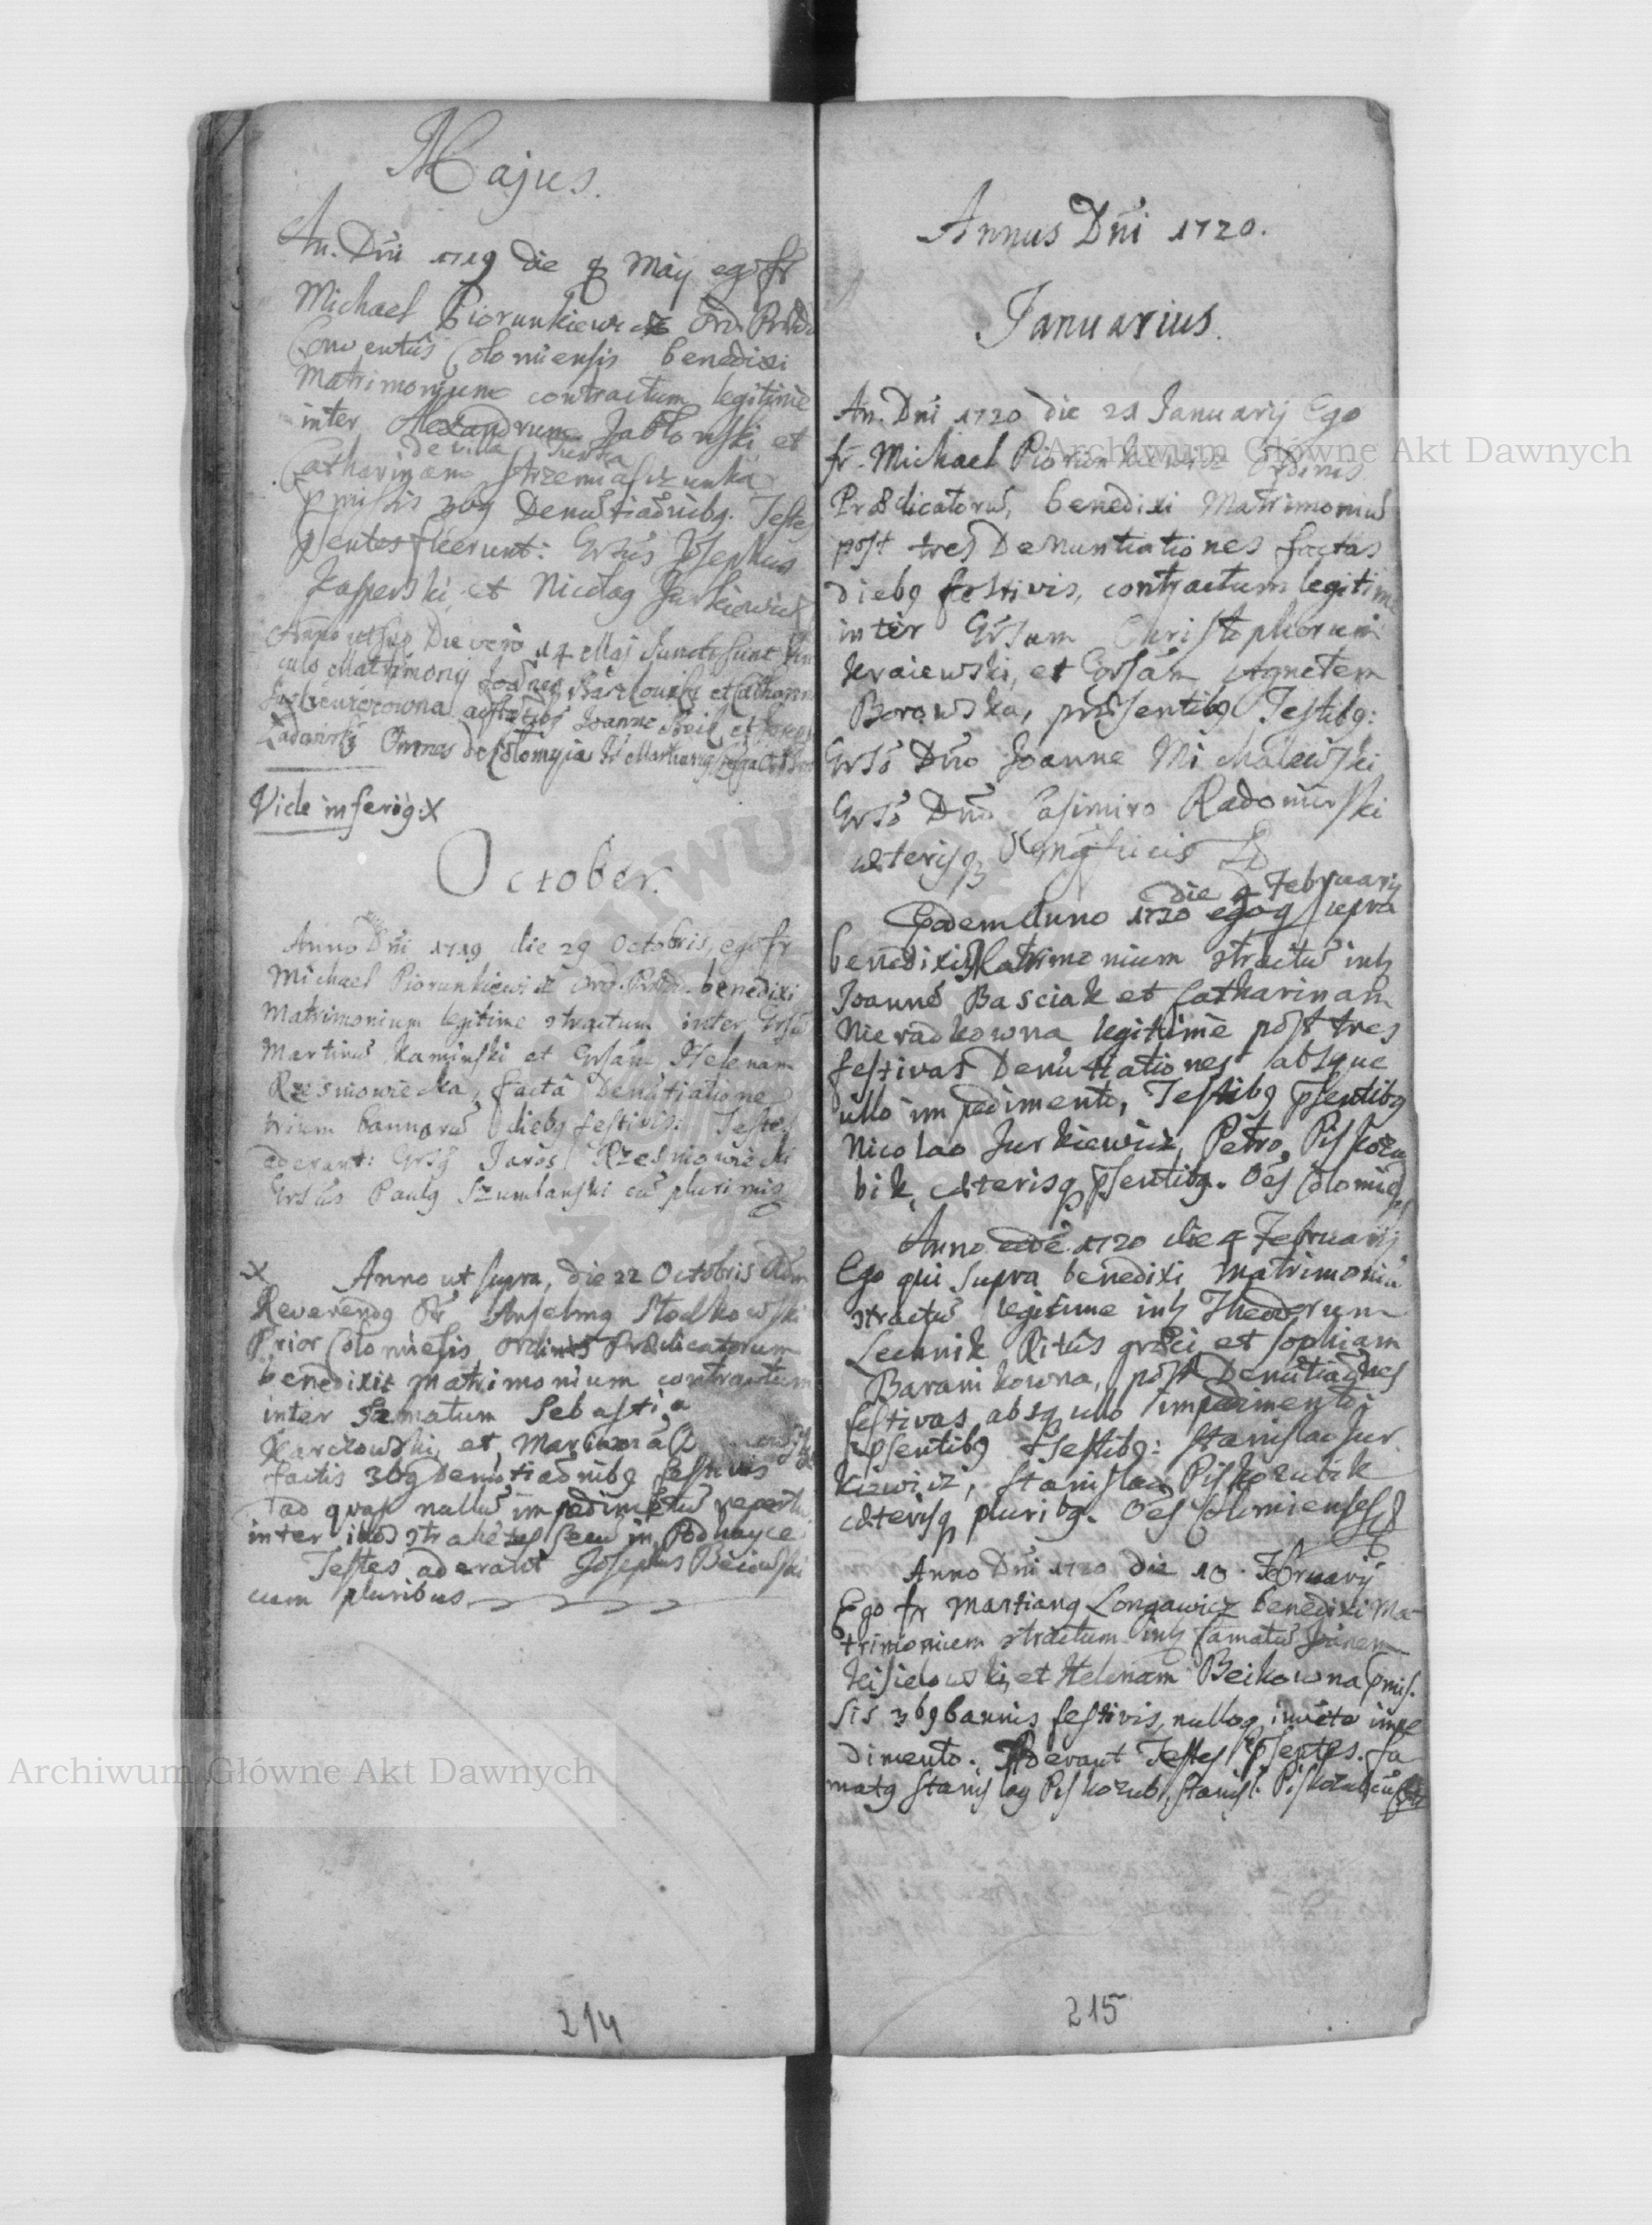 Majus.
An. Dni 1719 die Maij ego fr
Michael Piorunkiewicz Ord. Praed
Conventus Colomiensis benedixi
Matrimonium contractum legitime
inter Alexandrum Jabłonski et
de villa
Catharinam
pmissis 3bq Denutiaonibq. Testes
psentes fuerunt: Grsus Josephus
Kasperski, et Nicolaq Jurkiewicz
Anno ut sup Die vero 14 Maj Juncti sunt
culo Matrimonij Joanes et Cathарin
Joanne Beik et
Omnes de Colomyia fr Martianq
Vide inferiq X
October.
Anno Dni 1719 die 29 Octobris, ego fr
Michael Piorunkiewicz Ord. Praed. benedixi
Matrimonium legitime stractum inter Grsu
Martinu Kaminski et Grsam Helenam
Rzesniowiecka, facta Denutiatione
trium bannoru diebq festivis: Testes
aderant: Grsq Jaros Rzesniowiecki
Grsus Paulq Szumlanski cu plurimis
X Anno ut supra, die 22 Octobris Adm
Reverendq Pr Anselmq Słodkowski
Prior Colomiesis Ordinis Praedicatorum
benedixit matrimonium contractum
inter famatum Sebastia
Karczowski, et Mariana
factis 3bq Denutiaonibq festivis
ad quas nullu impedimetu repertu
inter illos strahetes seu in Podhayce
Testes aderant Josephus Beiowski
cum pluribus
214
Annus Dni 1720.
Januarius.
An. Dni 1720 die 21 Januarij Ego
fr. Michael Piorunkiewicz Ordinis
Praedicatoru, benedixi Matrimoniu
post tres Denuntiationes factas
diebq festivis, contractum legitime
inter Grsum Christophorum
Kraiewski, et Grsam Agnetem
Borowska, praesentibq Testibq:
Grso Dno Joanne Michalewski
Grso Dno Casimiro Radomirski
caeterisq
die 4 Februarij
Eodem Anno 1720 ego q supra
benedixi Matrimonium stractu int
Joanne Basciak et Catharinam
Nieradkowna legitime post tres
festivas Denutiationes absque
ullo impedimento, Testibq psentibq
Nicolao Jurkiewicz, Petro Piskozu
bik, caeterisq psentibq. Oes Colomie
Anno eode 1720 die 4 Februarij
Ego qui supra benedixi matrimoniu
stractu legitime int Theodorum
Lecunik Ritus graeci et Sophiam
Baranikowna, post Denutiaones
festivas absq ullo impedimento,
psentibq Testibq: Stanislao Jur
kiewicz, Stanislao Piskozubik
caeterisq pluribq. Oes Colomienses
Anno Dni 1720 die 10 Februarij
Ego fr Martianq Longawicz benedixi Ma-
trimonium stractum int famatu Joanem
Kisielowski, et Helenam Beikowna pmis-
sis 3bq bannis festivis, nulloq inveto impe
dimento. Aderant Testes psentes. fa
matq Stanislaq Piskozub, Stanisl. Piskozub
215
Archiwum Główne Akt Dawnych
Archiwum Główne Akt Dawnych